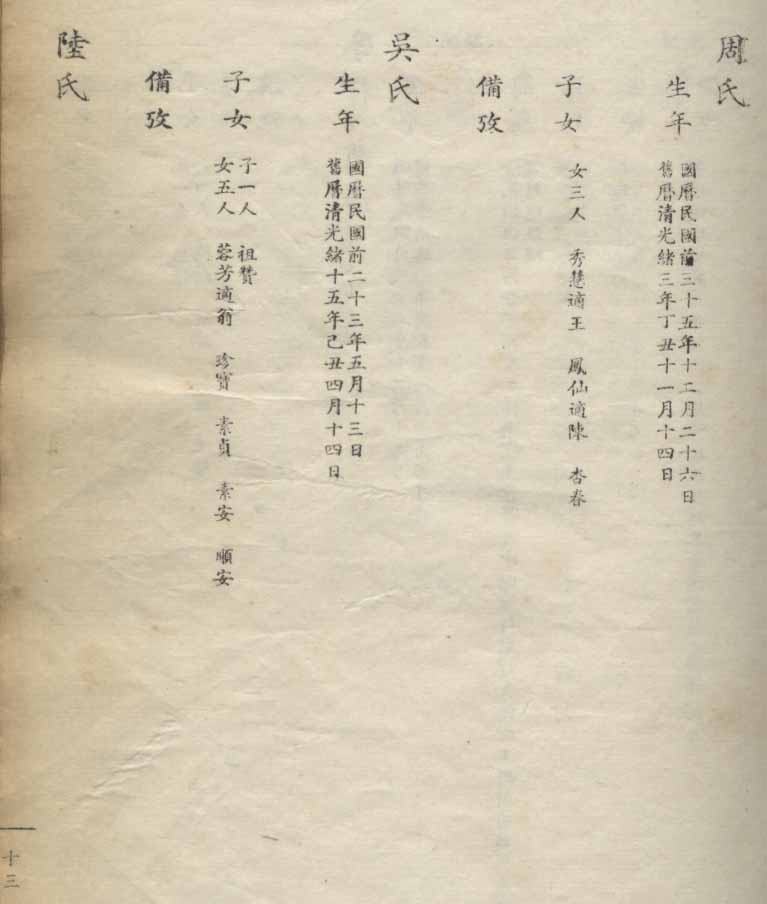 周氏
生年
國曆民國前三十五年十二月二十六日
舊曆清光緒三年丁丑十一月十四日
子女
女三人 秀慧適王 鳳仙適陳 杏春
備攷
吳氏
生年
國曆民國前二十三年五月十三日
舊曆清光緒十五年己丑四月十四日
子女
子一人 祖贊
女五人 蓉芳適翁 珍寶 素貞 素安 順安
備攷
陸氏
十三